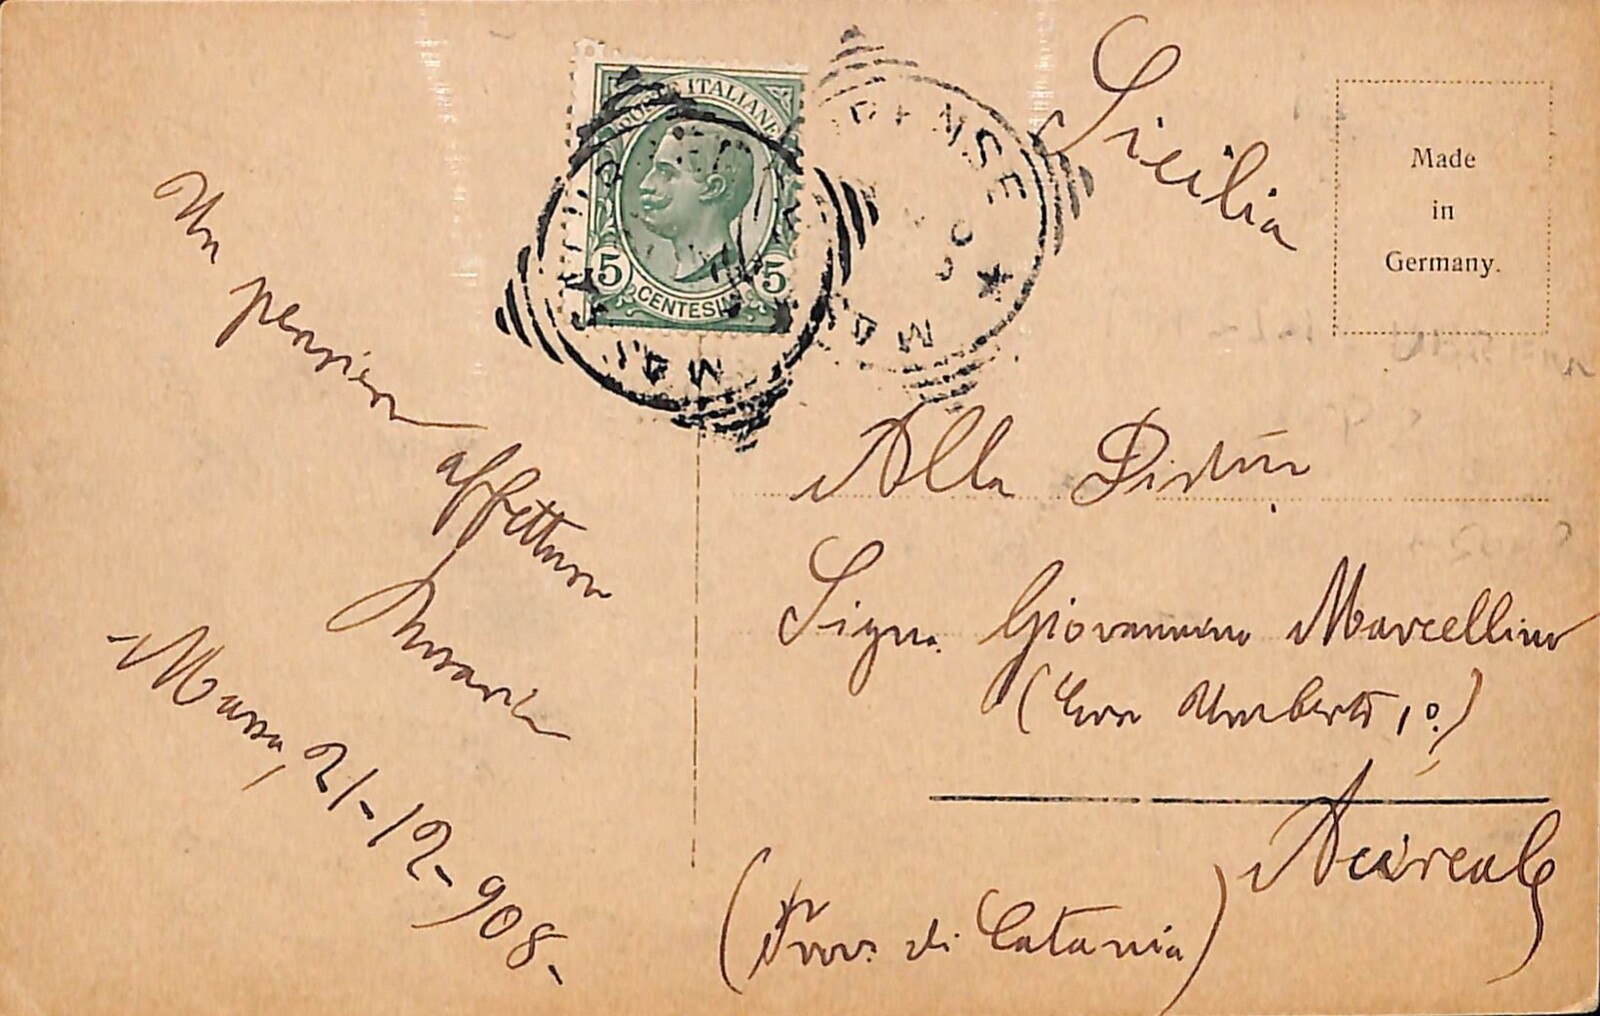 Sicilia
Made
in
Germany.
POSTE ITALIANE
5 5
CENTESIMI
Un pensiero
affettuoso
Rosaria
Massa, 21-12-908-
Alla Distin.
Signa. Giovannina Marcellino
(Corso Umberto 1º.)
Acireale
(Prov. di Catania)